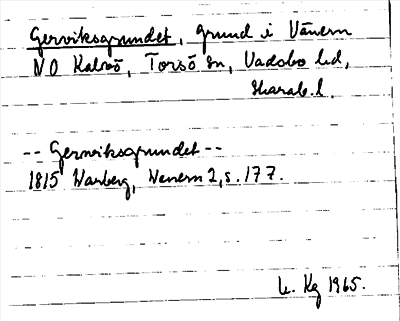 Gerviksgrundet, grund i Vänern
NO Kalvö, Torsö sn, Vadsbo hd,
Skarab.l.
-- Gerviksgrundet --
1815 Warberg, Wenern 2, s. 177.
Kg 1965.